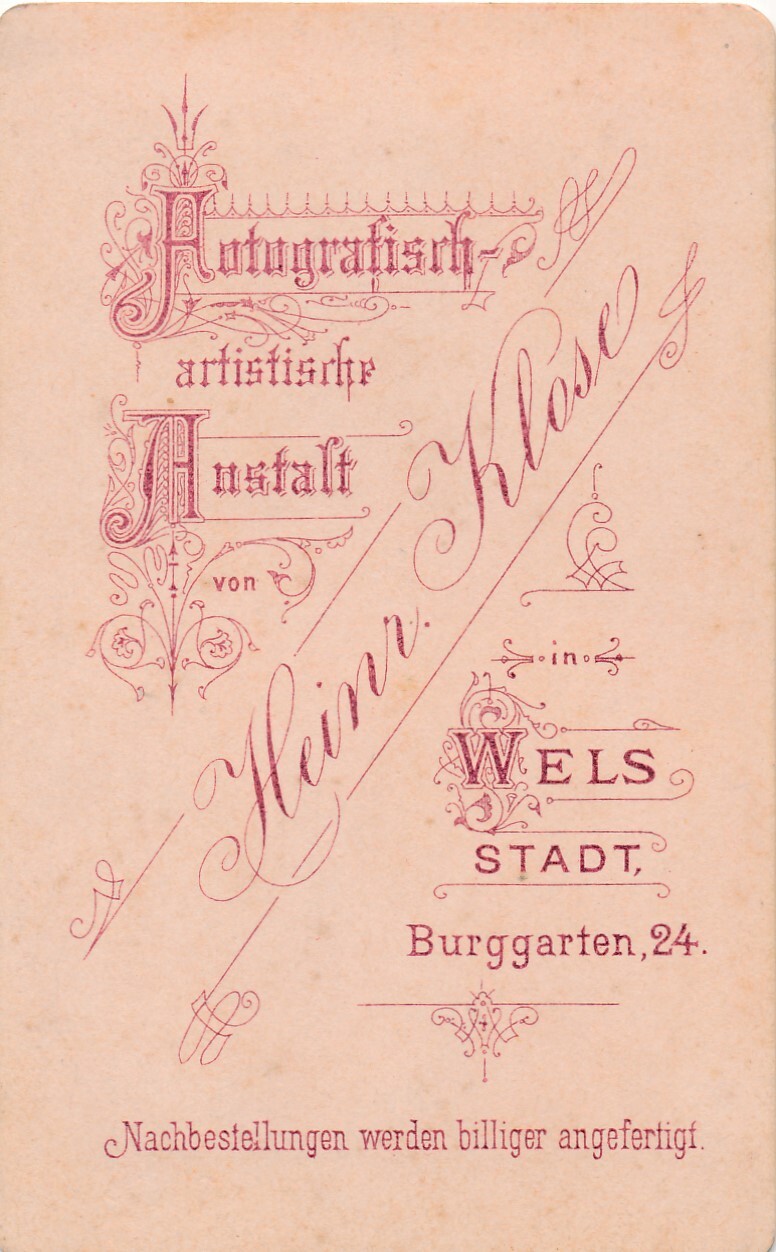 Fotografisch-
artistische
Anstalt
von
Heinr. Klose
in
WELS
STADT,
Burggarten, 24.
Nachbestellungen werden billiger angefertigt.